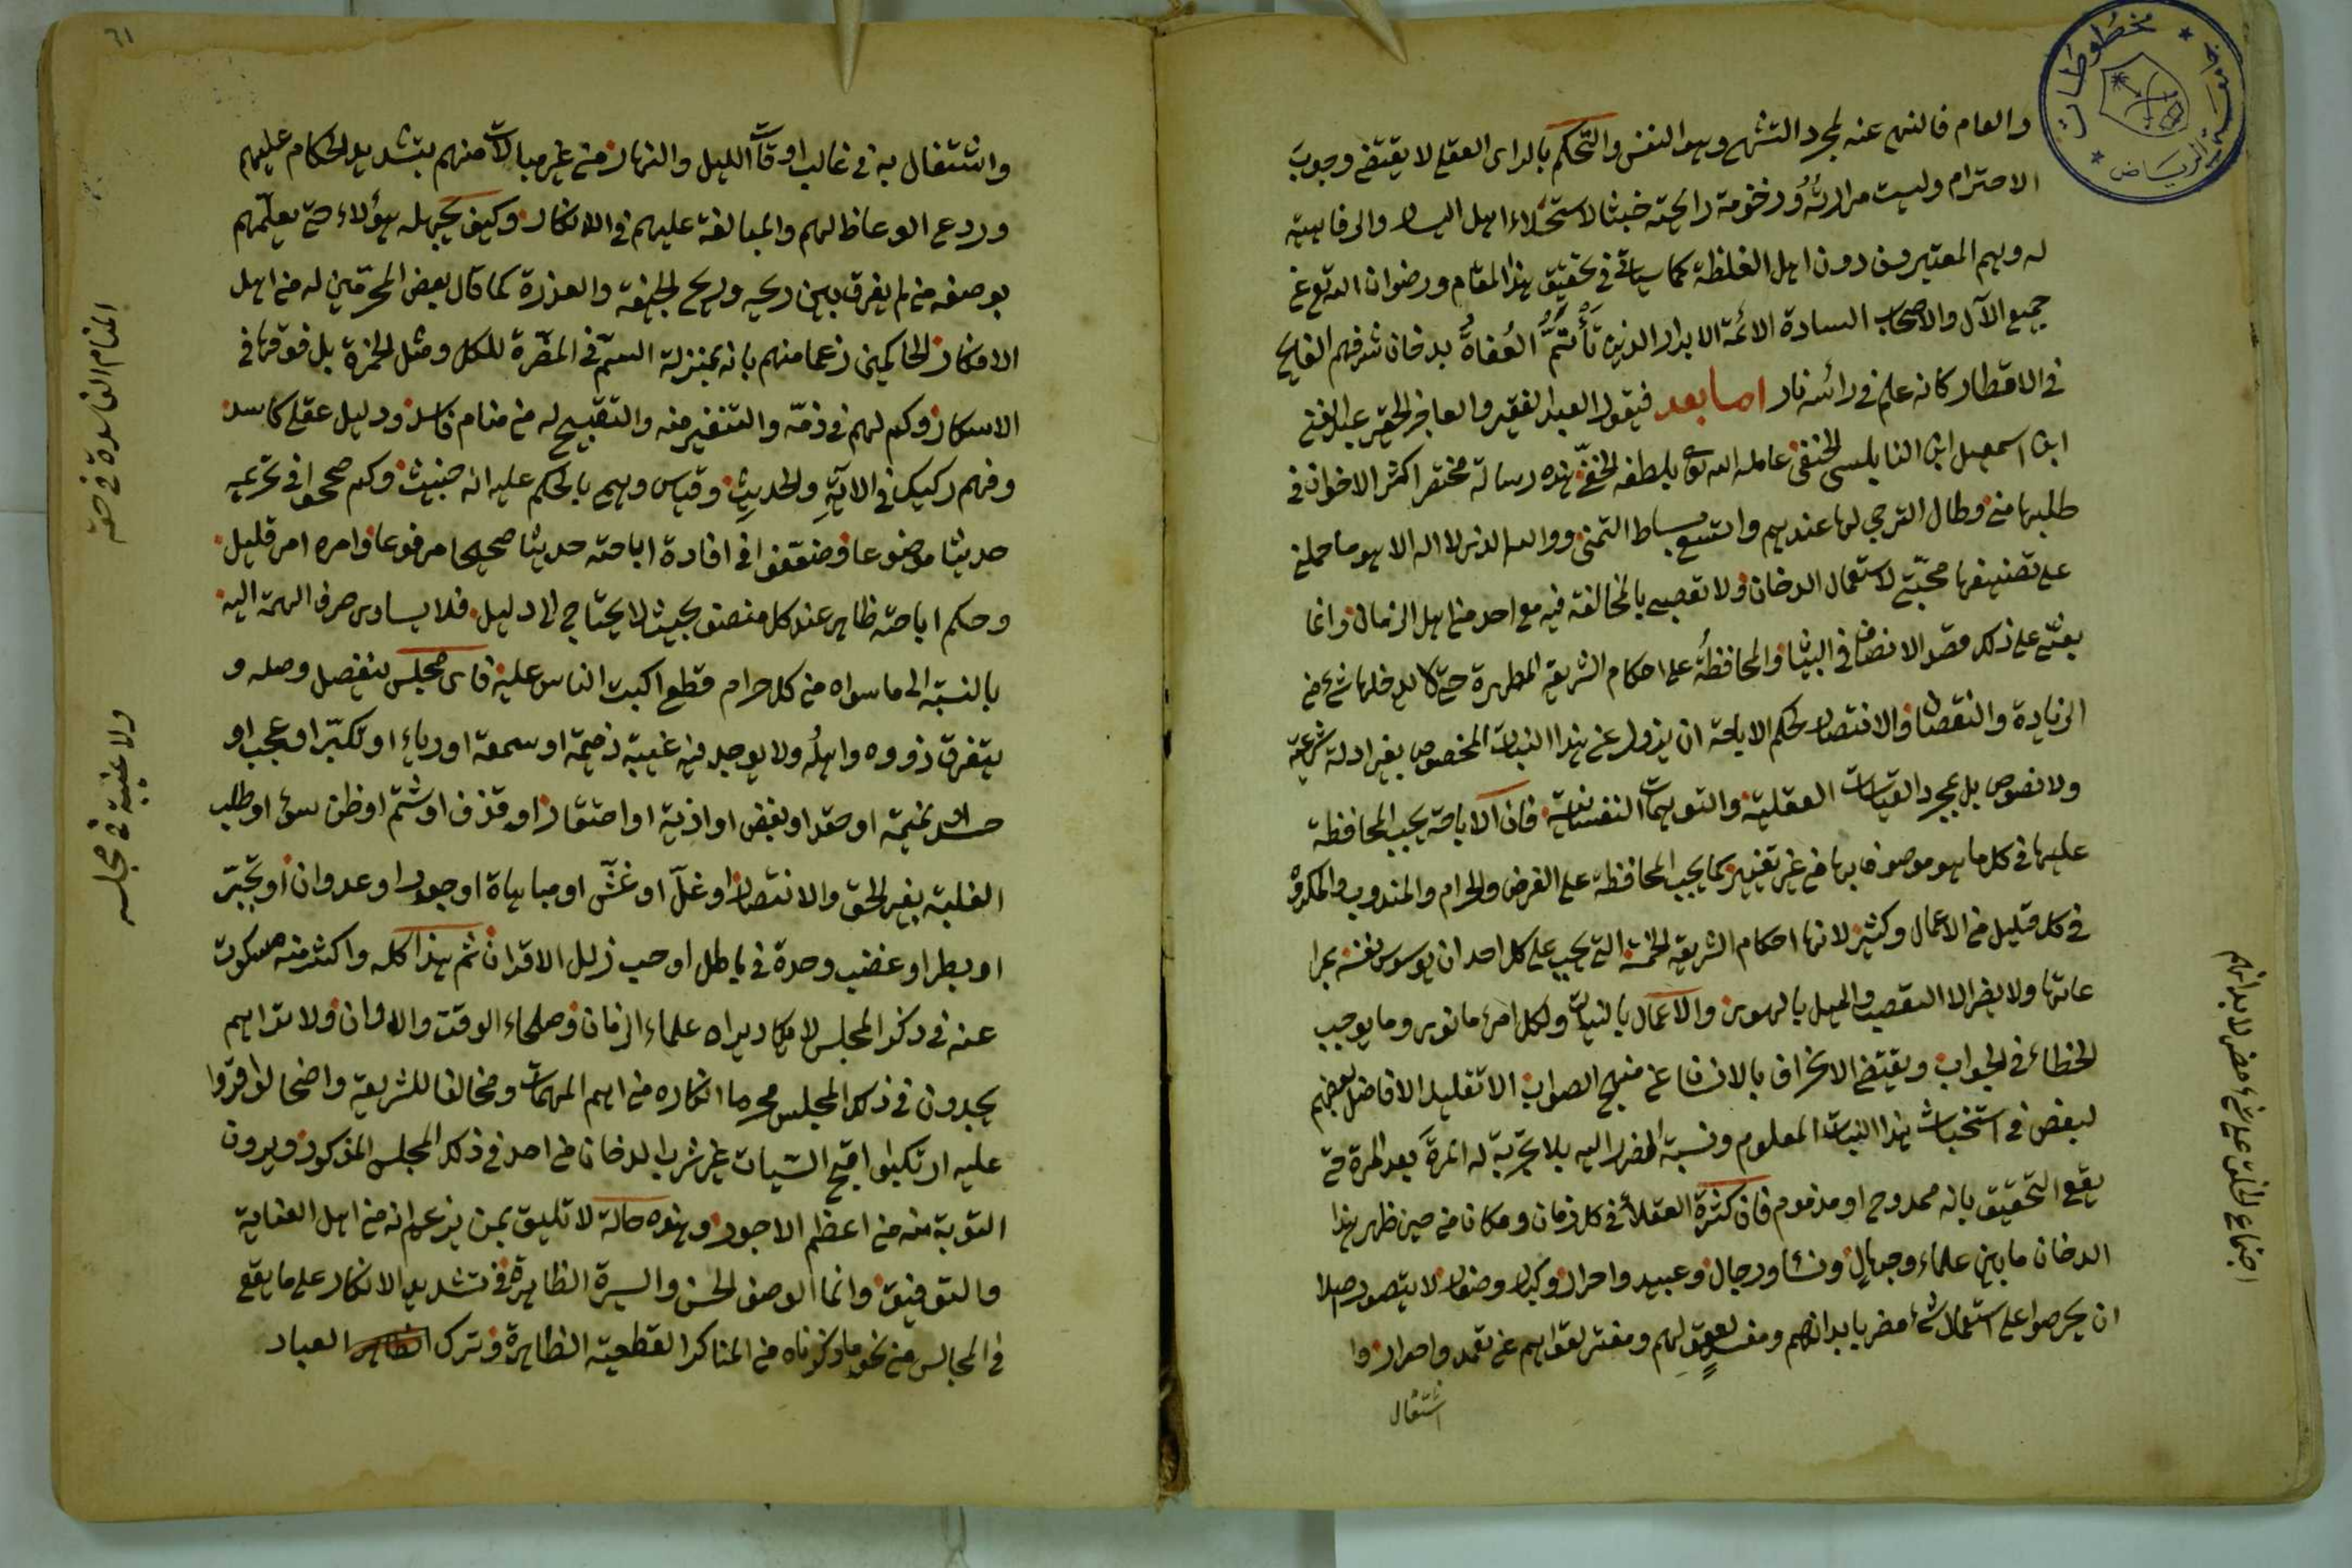 والعام فالنهي عنه لمجرد التشهي وهو النفس والتحكم بالرأى العقلي لا يقتضي وجوب
الاحترام وليست مرارته وزخومة رائحته خبثا لاستحلاء اهل اليسار والرفاهية
له وهم المعتبرون دون اهل الغلظة كما سيأتي في تحقيق هذا المقام ورضوان الله تع عن
جميع الآل والاصحاب السادة الائمة الابرار الذين تأتمّ العُفاةُ بدخان شرفهم الفايح
في الاقطار كانه علم في رأسه نار اما بعد فيقول العبد الفقير والعاجز الحقير عبد الغني
ابن اسمعيل ابن النابلسي الحنفي عامله الله تع بلطفه الخفيّ هذه رسالة مختصر اكثر الاخوان في
طلبها مني وطال الترجي لها عندهم واتسع بساط التمني ووالله الذي لا اله الا هو ما حملني
على تصنيفها محبتي لاستعمال الدخان ولا تعصبي بالمخالفة فيه مع احد من اهل الزمان وانما
بعثني على ذلك قصد الانصاف في البيان والمحافظة على احكام الشريعة المطهرة حتى لا يدخلها شئ من
الزيادة والنقصان والانتصار لحكم الاباحة ان يزول عن هذا النبات المخصوص بغير ادلة شرعية
ولا نصوص بل بمجرد القياسات العقلية والتوهمات النفسانية فان الاباحة يجب المحافظة
عليها في كل ما هو موصوف بها من غير تغيير كما يجب المحافظة على الفرض والحرام والمندوب والمكروه
في كل قليل من الاعمال وكثير لانها احكام الشريعة الخمسة التي يجب على كل احد ان يوسوس نفسه بمرا
عاتها ولا يضر الا التعصب والميل بالهوى والاعمال بالنيات ولكل امرء ما نوى وما يوجب
الخطاء في الجواب ويقتضي الانحراف بالانسان عن منهج الصواب الا تقليد الافاضل بعضهم
لبعض في استخباث هذا النبات المعلوم ونسبة الضرر اليه بلا تجربة له المرة بعد المرة حتى
يقع التحقيق بانه ممدوح او مذموم فان كثرة العقلاء في كل زمان ومكان من حين ظهر هذا
الدخان ما بين علماء وجهال ونساء ورجال وعبيد واحرار وكبار وصغار لا يتصور اصلا
ان يحرصوا على استعمال شئ مضر بابدانهم ومفسد لعقولهم ومفتر لقواهم عن تعمد واصرار وا
اشتغال
اجتماع الخلق على شئ مضر لابدانهم
واشتغال به في غالب اوقات الليل والنهار من غير مبالات منهم بتشديد الحكام عليهم
وردع الوعاظ لهم والمبالغة عليهم في الانكار وكيف يجهله هؤلاء حتى يعلّمهم
بوصفه من لم يفرق بين ريحه وريح الجيفة والعذرة كما قال بعض المحرّمين له من اهل
الافكار الحاكمين زعما منهم بانه بمنزلة السمّ في المضرة للكل ومثل الخمرة بل فوقها في
الاسكار وكم لهم في ذمّه والتنفير منه والتقبيح له من منام فاسد ودليل عقلى كاسد
وفهم ركيك في الآية والحديث وقياس وهمي بالحكم عليه انه خبيث وكم صححوا في تحريمه
حديثا موضوعا وضعّفوا في افادة اباحته حديثا صحيحا مرفوعا وامره امر قليل
وحكم اباحته ظاهر عند كل منصف بحيث لا يحتاج الى دليل فلا يساوى صرف الهمة اليه
بالنسبة الى ما سواه من كل حرام قطع اكبت الناس عليه فاى مجلس ينفصل وصله و
يتفرق ذووه واهلُه ولا يوجد فيه غيبة ذميمة او سمعة او رياء او تكبّر او عجب او
حسد او نميمة او حقد او بغض او اذية او احتقار او قذف او شتم او ظن سوء او طلب
الغلبة بغير الحق والانتصار او غلّ او غشّ او مباهاة او جور او عدوان او تجبّر
او بطر او غضب وحدة في باطل او حب زلل الاقران ثم هذا كله واكثر منه مسكوت
عنه في ذكر المجلس لا يكاد يراه علماء الزمان وصلحاء الوقت والاوان ولا تراهم
يجدون في ذلك المجلس محرما انكاره من اهم المهمات ومخالفا للشريعة واضحا لو اقروا
عليه ارتكبوا اقبح السيات غير شرب الدخان من احد في ذلك المجلس المذكور ويرون
التوبة منه من اعظم الاجور وهذه حالة لا تليق بمن يزعم انه من اهل العناية
والتوفيق وانما الوصف الحسن والسيرة الظاهرة في تشديد الانكار على ما يقع
في المجالس من نحو ما ذكرناه من المناكر القطعية الظاهرة وترك العباد
المنام الفاسدة في حقه
ولا غيبة في مجلسه
مخطوطات
الرياض
٦١